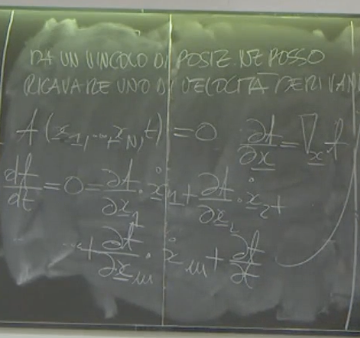 DA UN VINCOLO DI POSIZ.NE POSSO
RICAVARE UNO DI VELOCITÀ DERIVAN
f(x₁, ..., x_N, t) = 0   ∂f/∂x = ∇_x f
df/dt = 0 = ∂f/∂x₁ · ẋ₁ + ∂f/∂x₂ · ẋ₂ +
... + ∂f/∂x_m · ẋ_m + ∂f/∂t